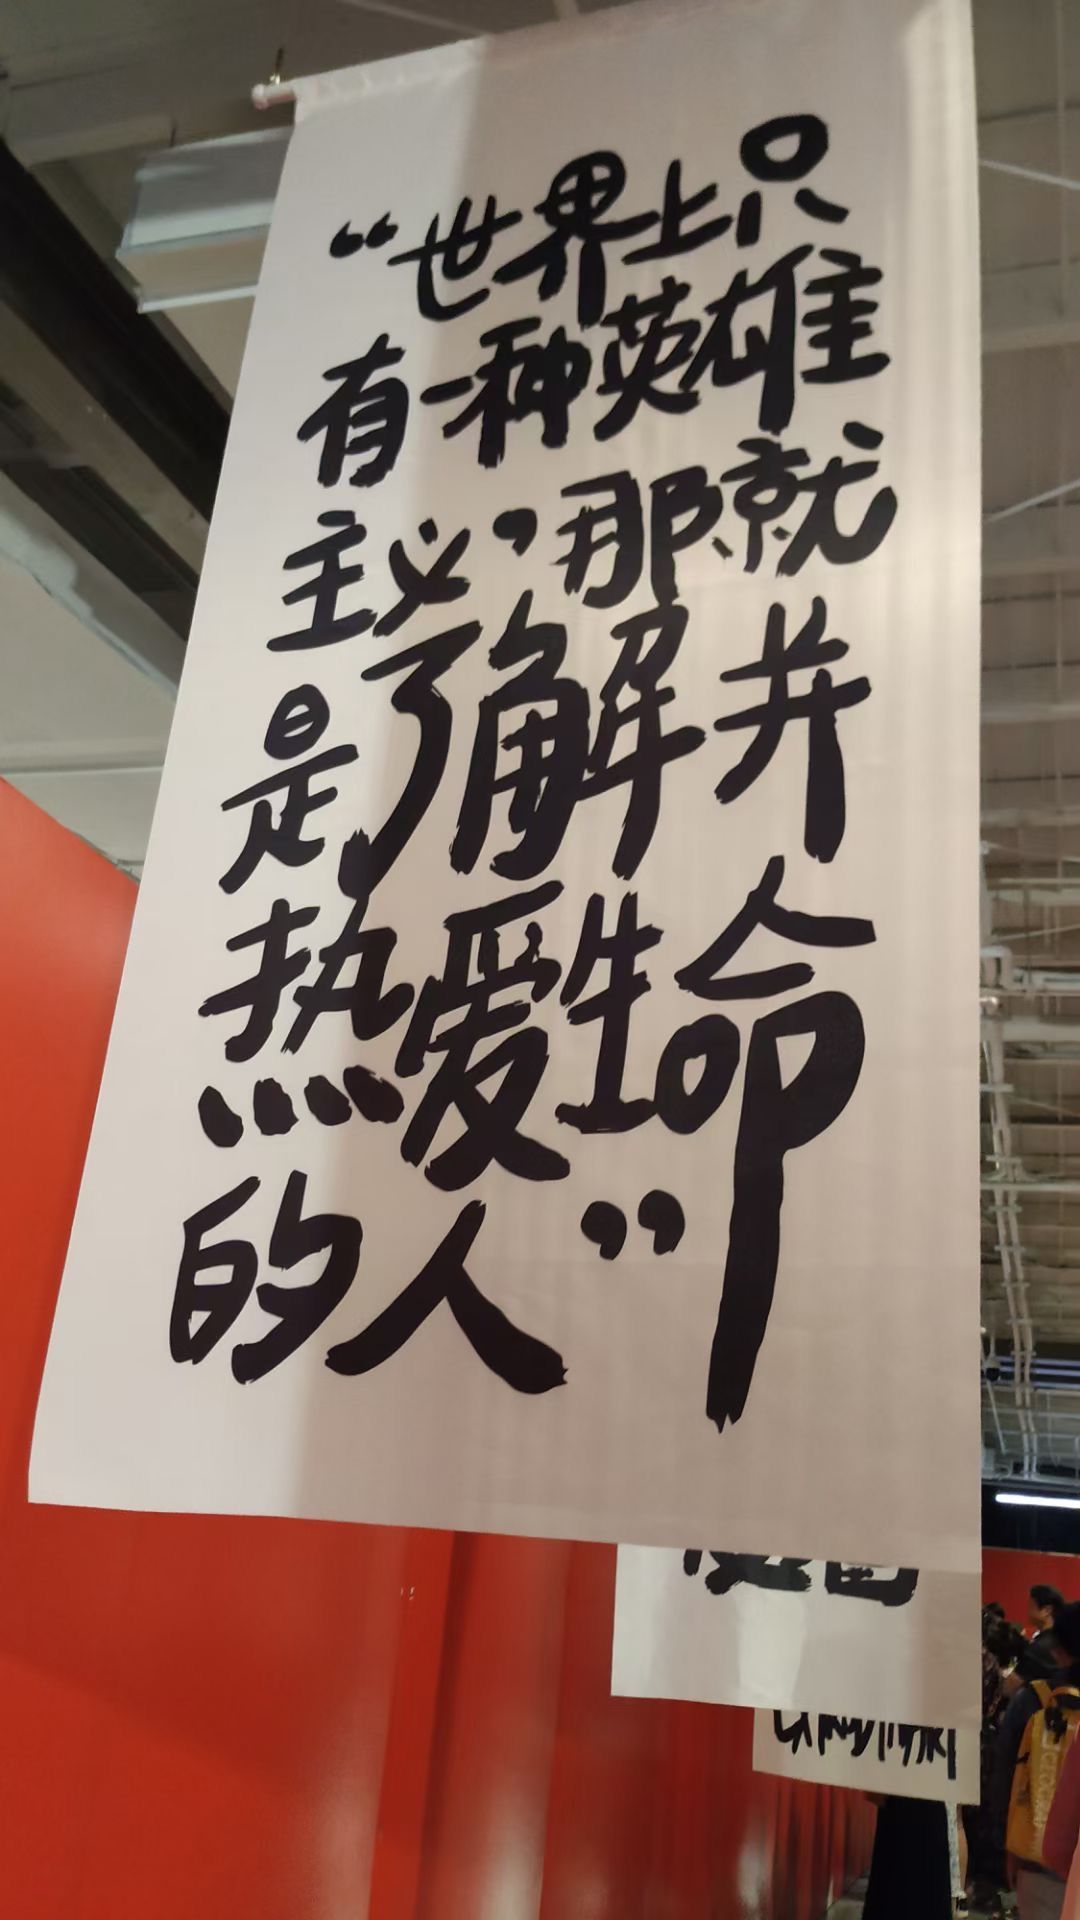 “世界上只
有一种英雄
主义，那就
是了解并
热爱生命
的人”